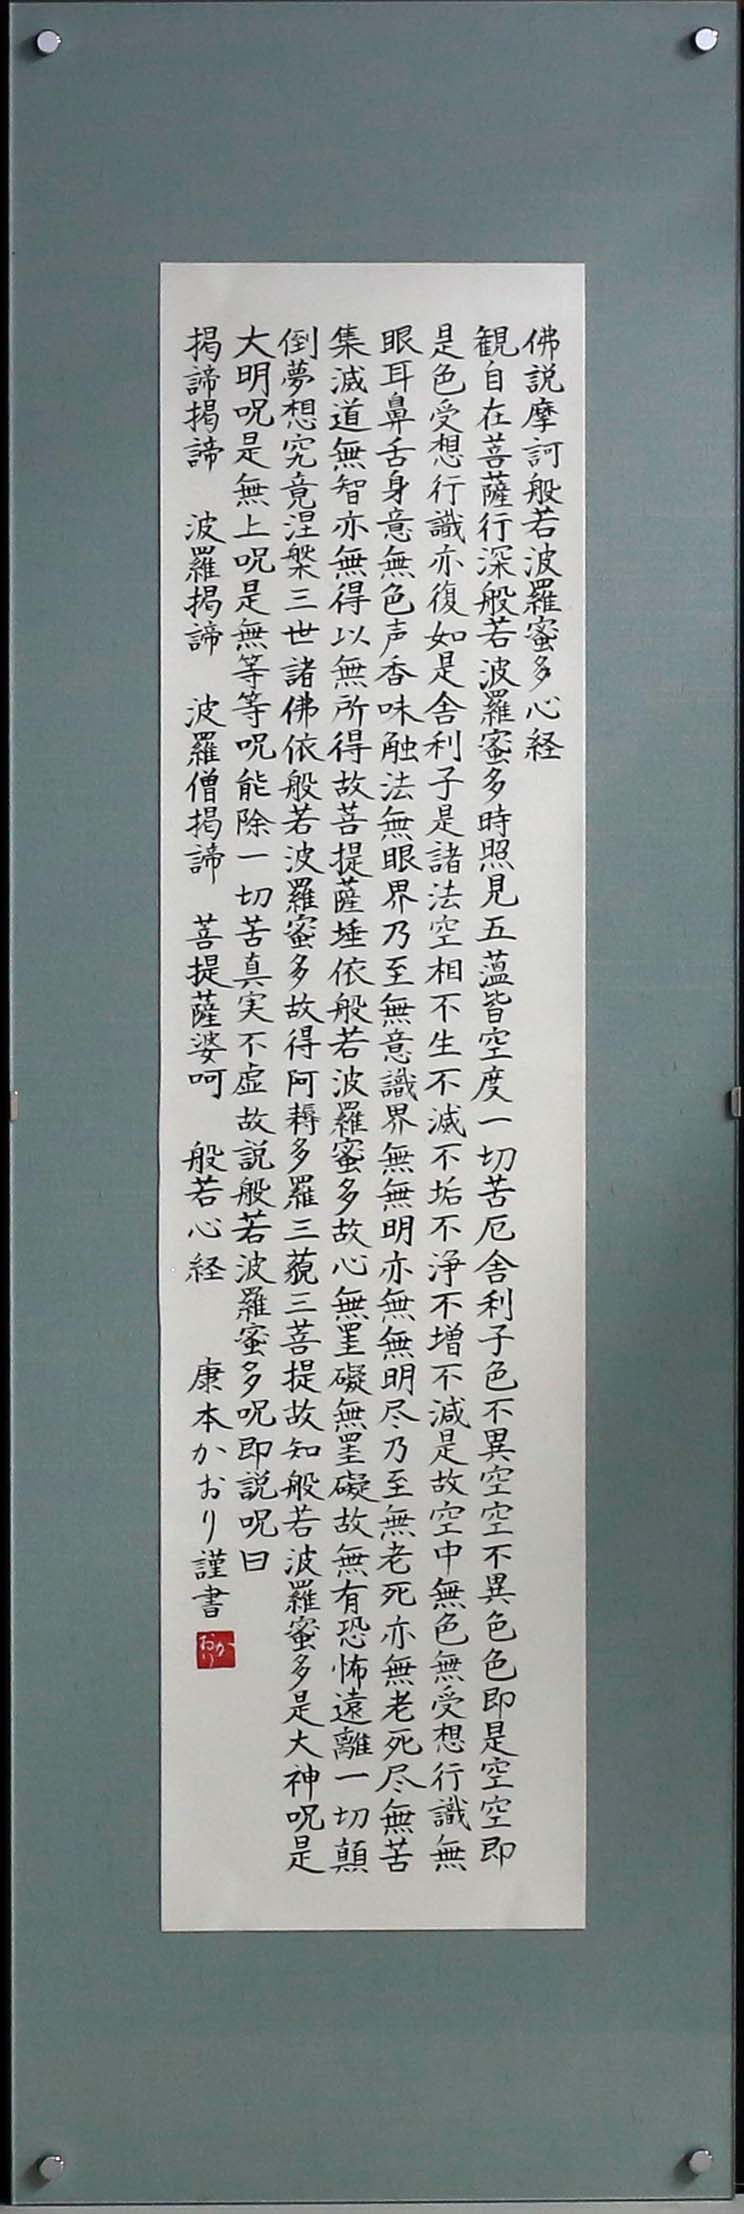 佛説摩訶般若波羅蜜多心経
観自在菩薩行深般若波羅蜜多時照見五蘊皆空度一切苦厄舎利子色不異空空不異色色即是空空即
是色受想行識亦復如是舎利子是諸法空相不生不滅不垢不浄不増不減是故空中無色無受想行識無
眼耳鼻舌身意無色声香味触法無眼界乃至無意識界無無明亦無無明尽乃至無老死亦無老死尽無苦
集滅道無智亦無得以無所得故菩提薩埵依般若波羅蜜多故心無罣礙無罣礙故無有恐怖遠離一切顛
倒夢想究竟涅槃三世諸佛依般若波羅蜜多故得阿耨多羅三藐三菩提故知般若波羅蜜多是大神呪是
大明呪是無上呪是無等等呪能除一切苦真実不虚故説般若波羅蜜多呪即説呪曰
掲諦掲諦　波羅掲諦　波羅僧掲諦　菩提薩婆呵　般若心経　康本かおり謹書
かおり